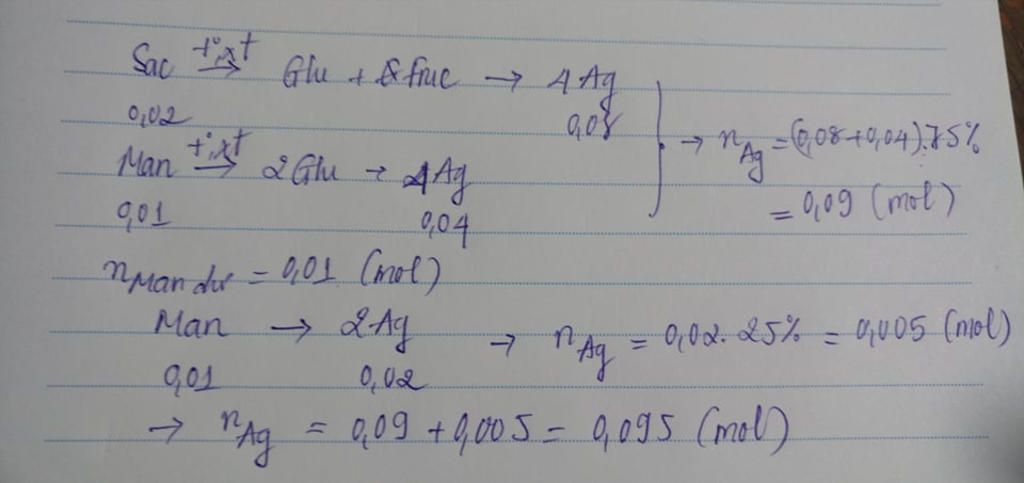 Sac t°,xt → Glu + fruc → 4Ag
0,02 0,08
→ nAg = (0,08+0,04).75%
Man t°,xt → 2Glu → 4Ag
= 0,09 (mol)
0,01 0,04
nMan dư = 0,01 (mol)
Man → 2Ag → nAg = 0,02.25% = 0,005 (mol)
0,01 0,02
→ nAg = 0,09 + 0,005 = 0,095 (mol)